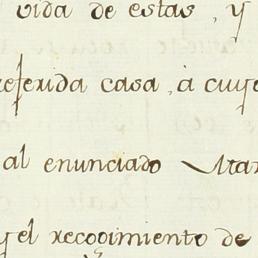 vida de estas, y
referida casa, à cuyo
al enunciado
y el recogimiento de